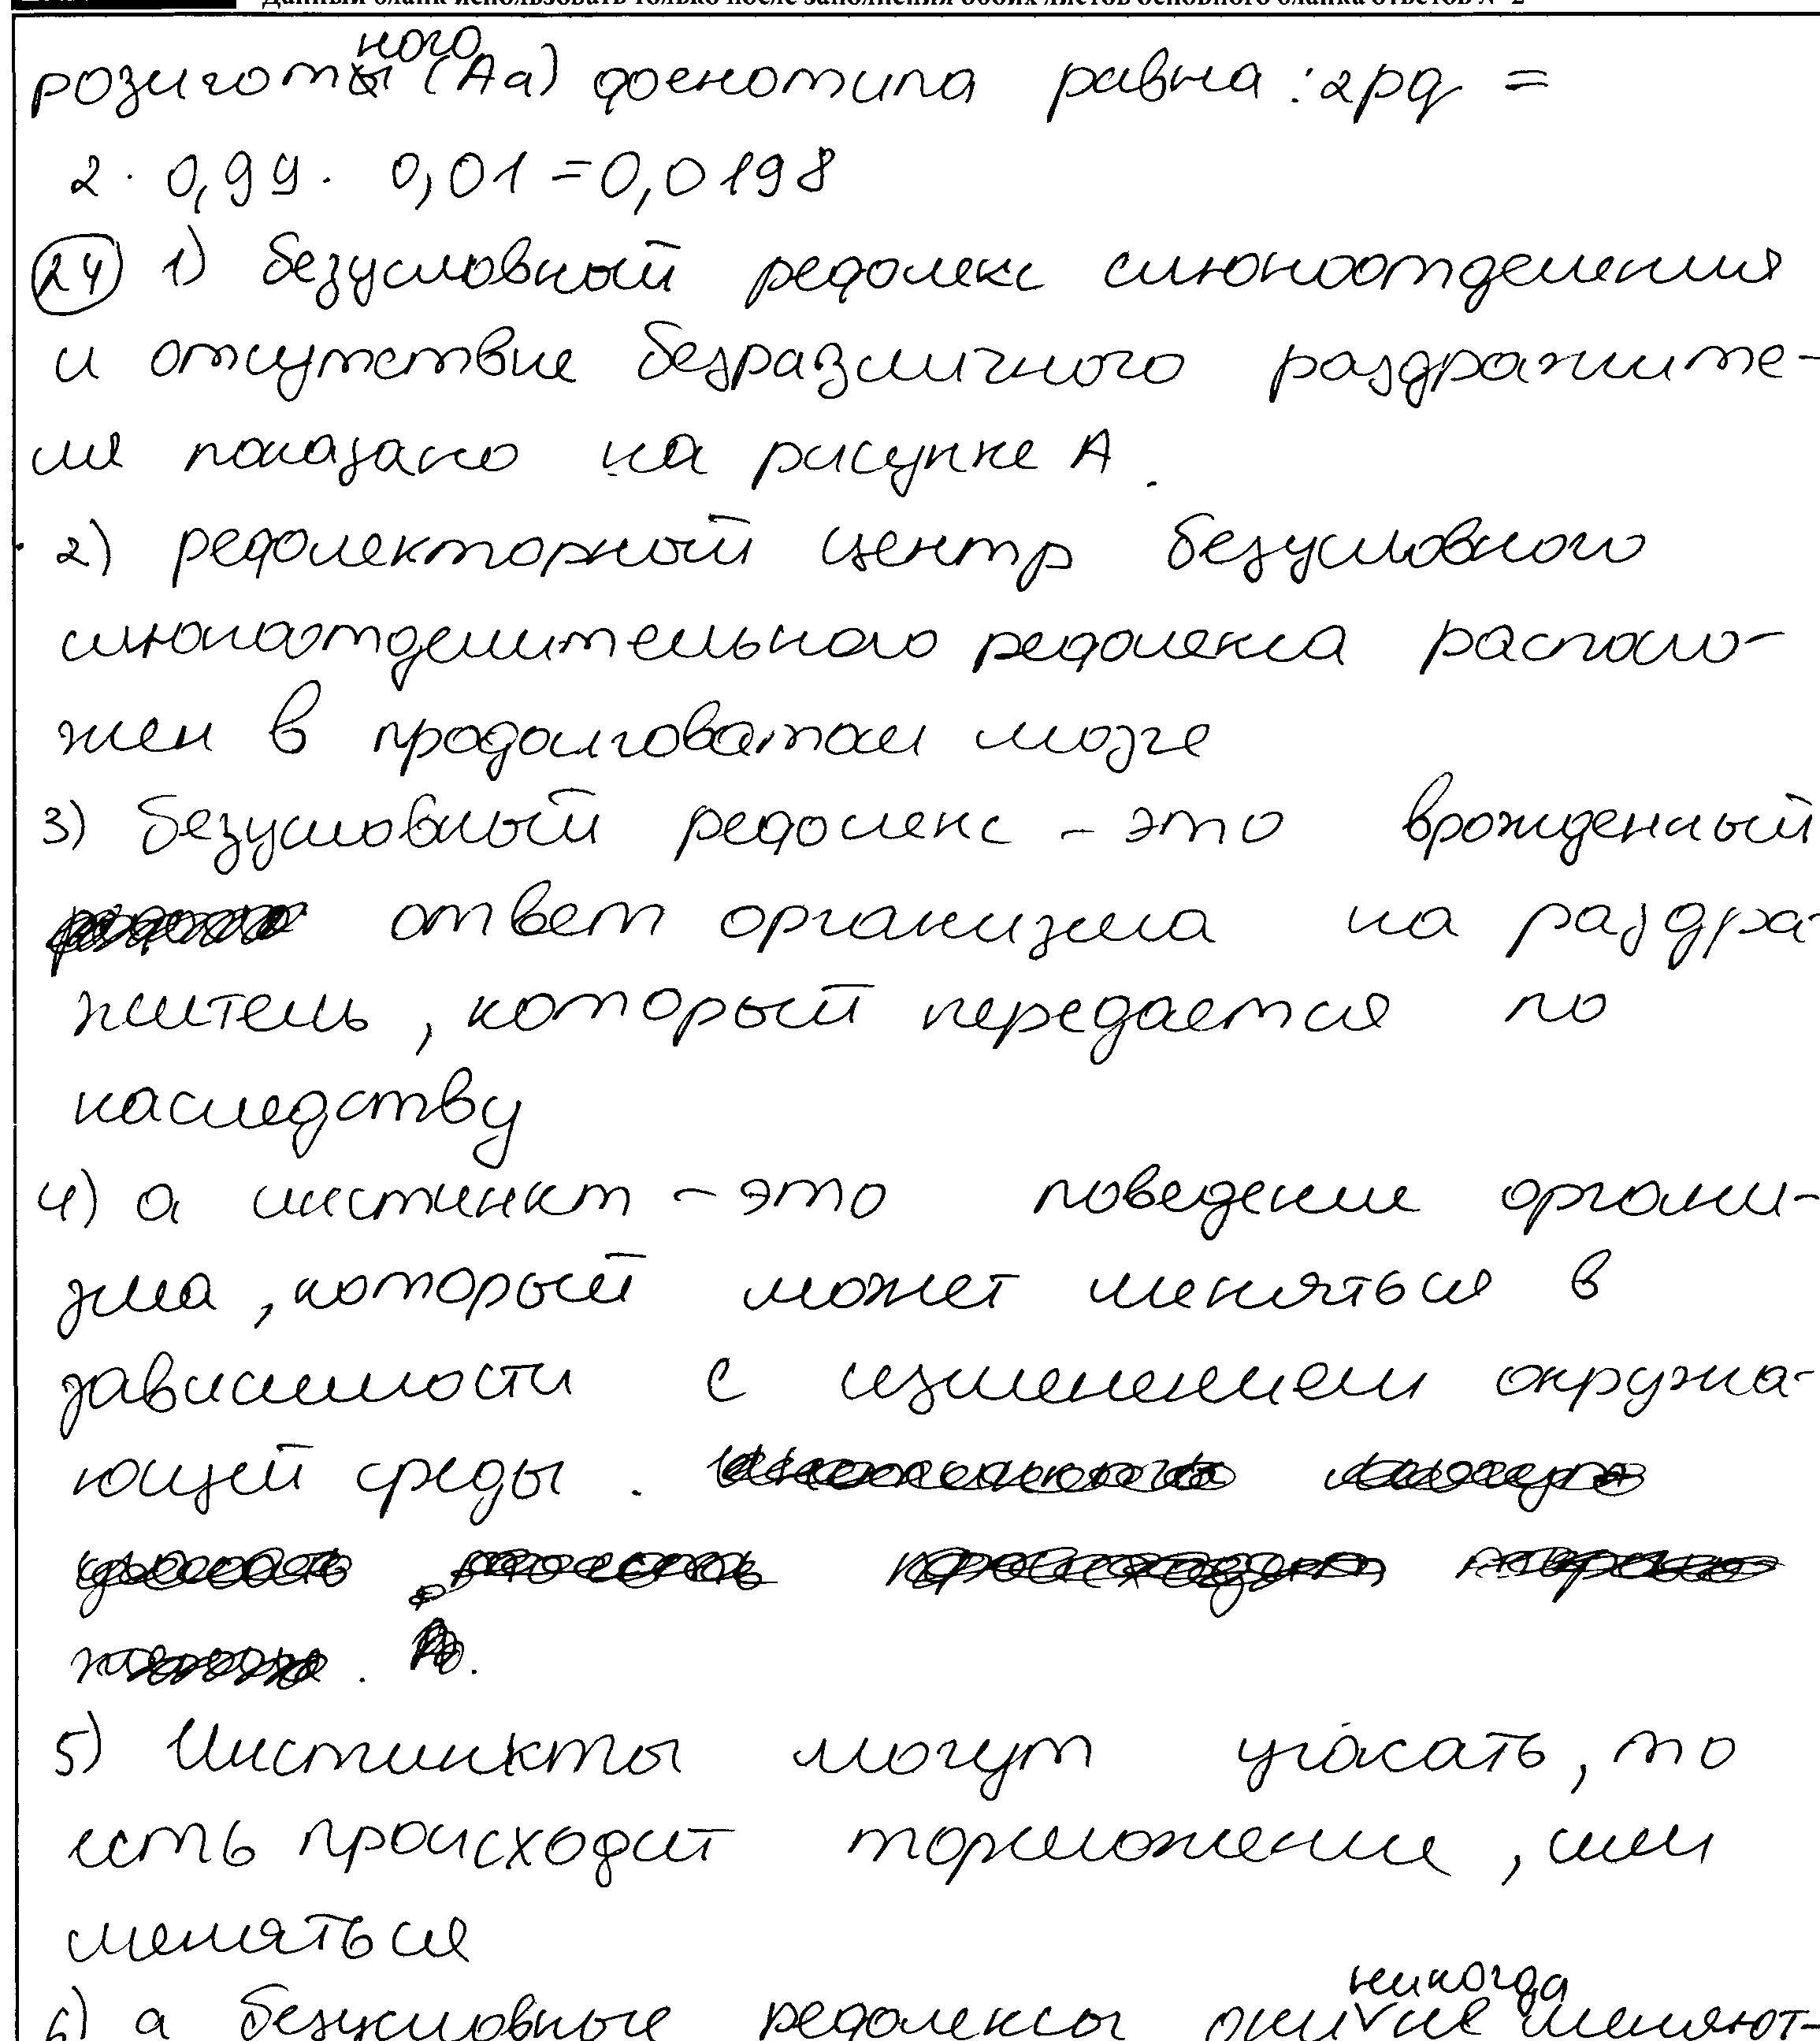 Данный бланк использовать только после заполнения обоих листов основного бланка ответов № 2
розиготного (Аа) фоенотипа равна: 2pq =
2 · 0,99 · 0,01 = 0,0198
24 1) безусловный рефолекс слюноотделения
и отсутствие безразличного раздражите-
ля показано на рисунке А.
2) рефолекторный центр безусловного
слюноотделительного рефолекса располо-
жен в продолговатом мозге
3) безусловный рефолекс - это врожденный
ответ организма на раздра-
житель, который передается по
наследству
4) а инстинкт - это поведение органи-
зма, который может меняться в
зависимости с изменением окружа-
ющей среды.
5) Инстинкты могут угасать, то
есть происходит торможение, или
меняться
6) а безусловные рефолексы они никогда не меняют-